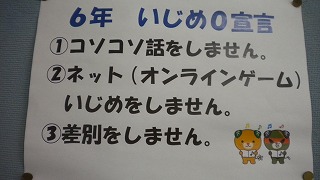 ６年　いじめ０宣言
①コソコソ話をしません。
②ネット（オンラインゲーム）
いじめをしません。
③差別をしません。